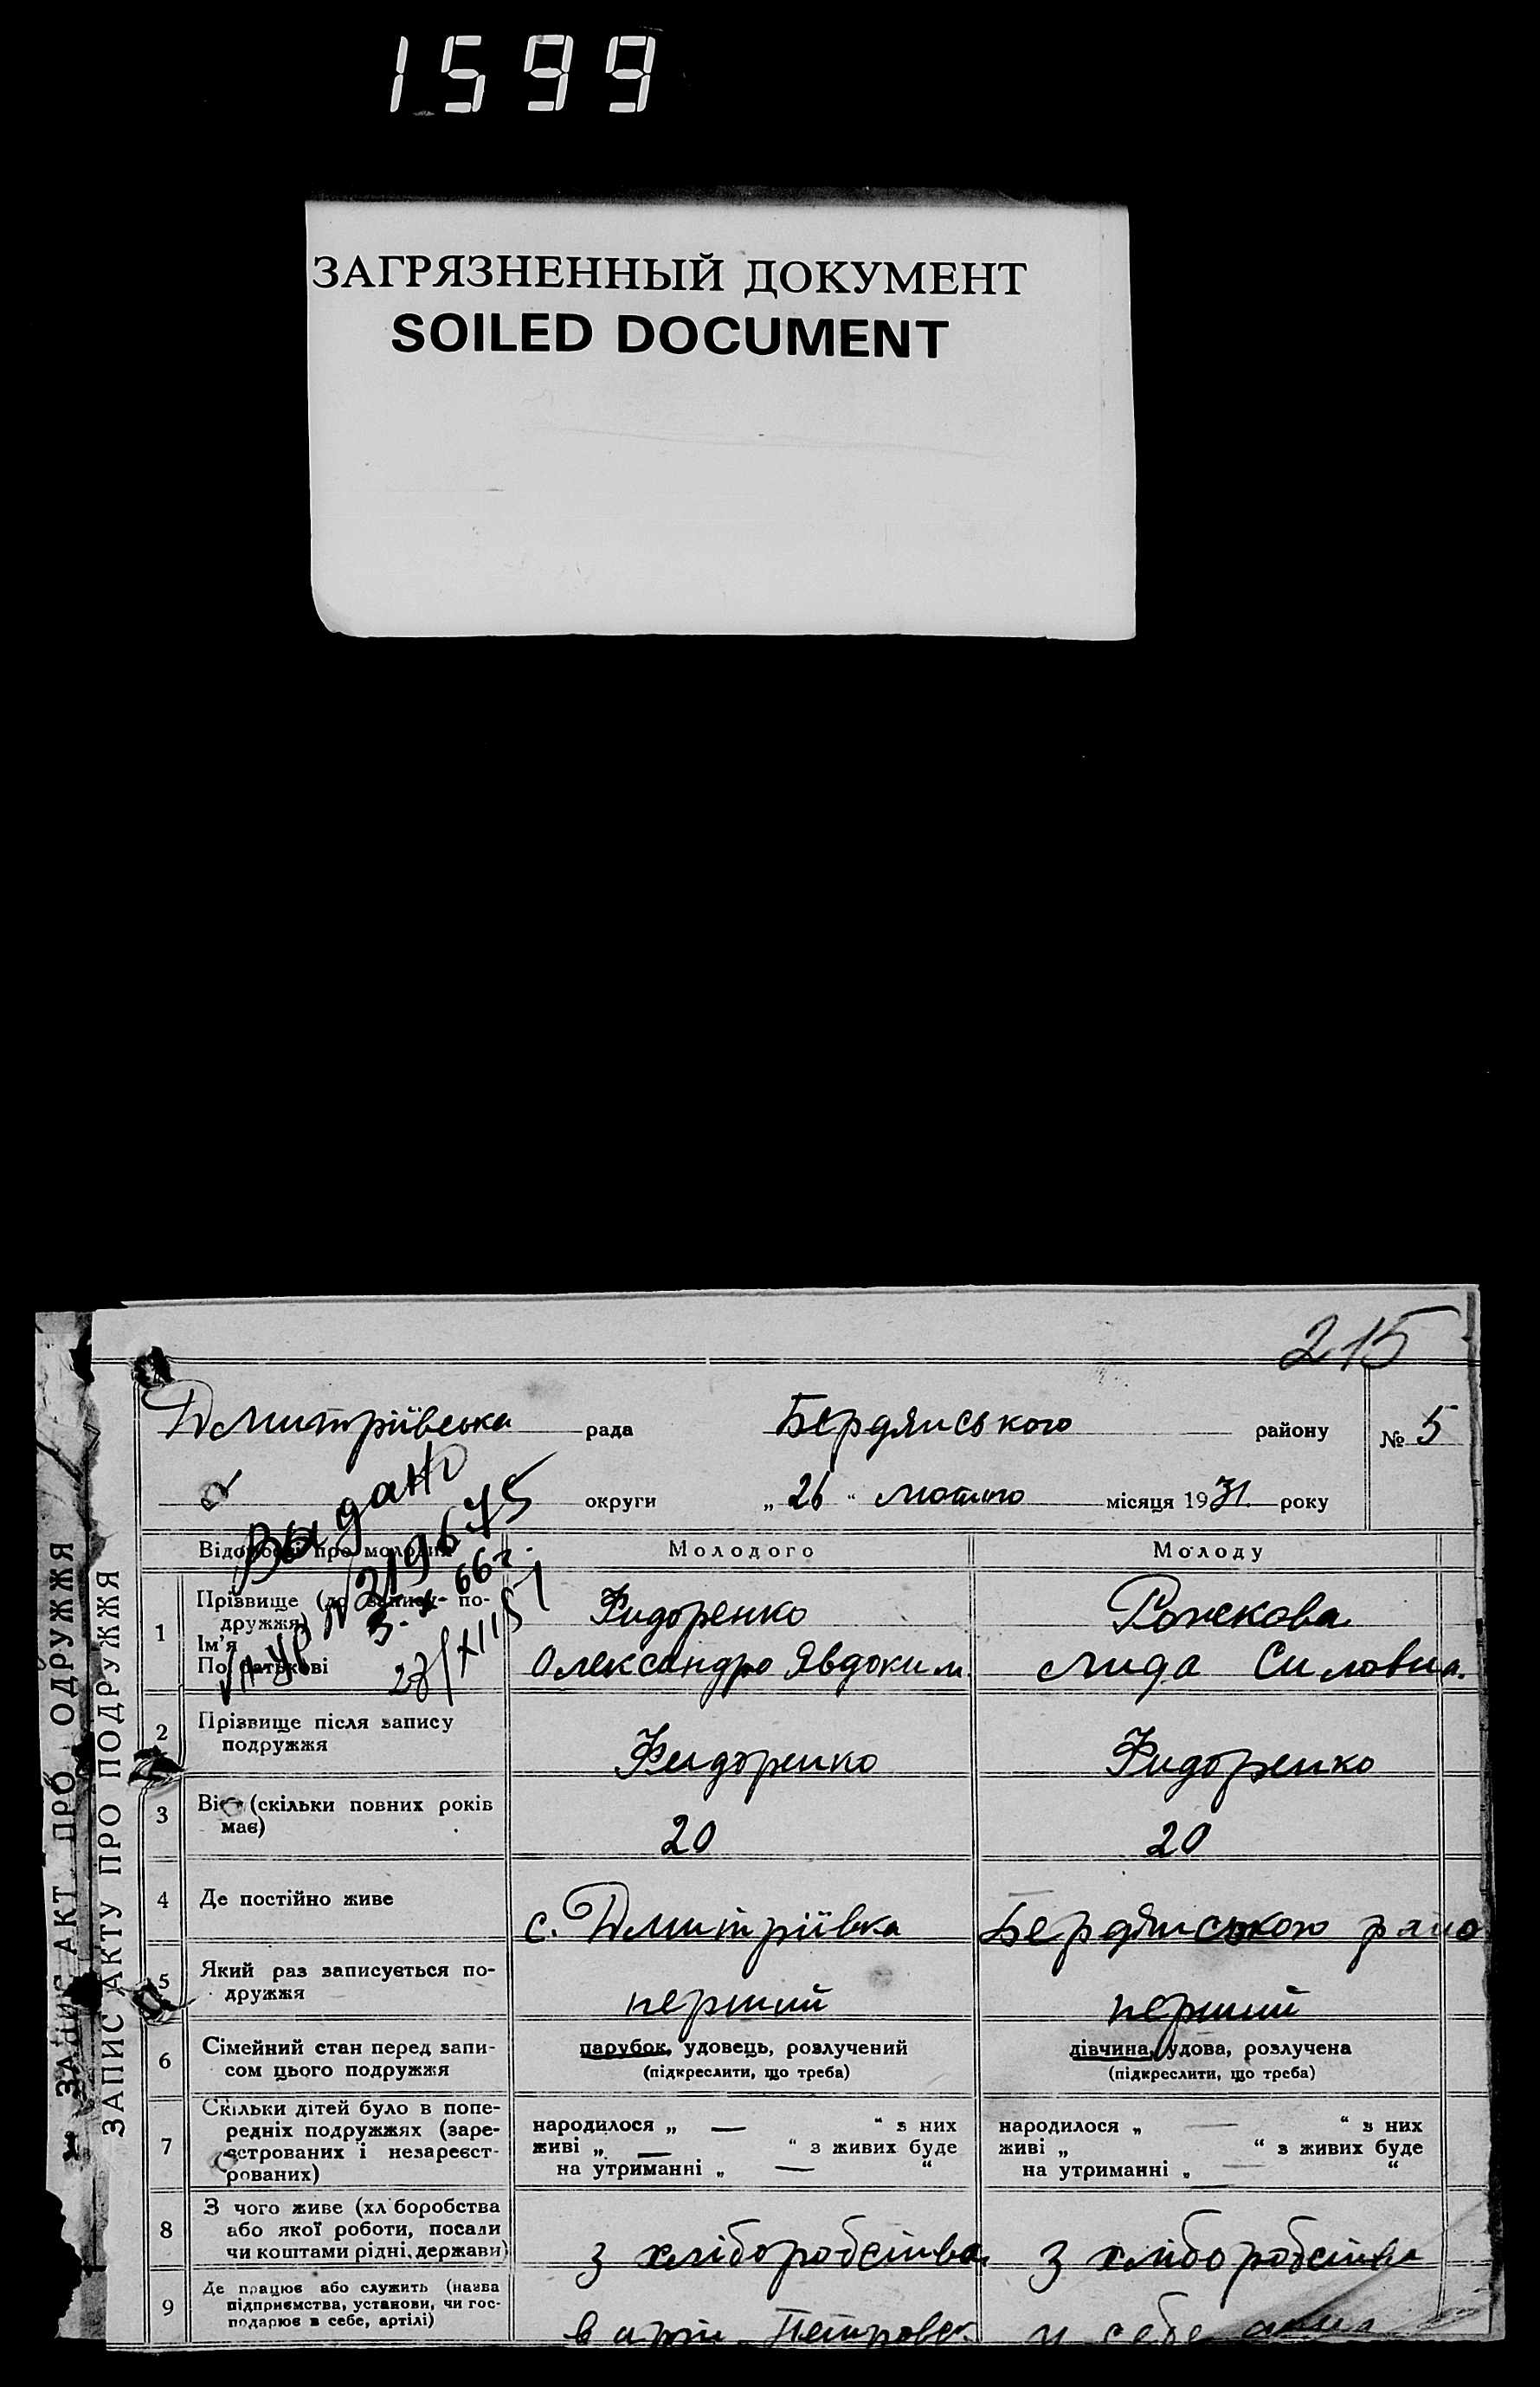 1599
ЗАГРЯЗНЕННЫЙ ДОКУМЕНТ
SOILED DOCUMENT
215
Дмитріївська рада Бердянського району № 5
округи „ 26 “ лютого місяця 1931 року
Видано
№ 219675
66 г.
Відомості про молодих Молодого Молоду
1 Прізвище (до запису по-
дружжя)
Ім'я
По батькові
Фидоренко
Олександро Явдоким.
Рожкова
Лида Силовна.
2 Прізвище після запису
подружжя
Фидоренко Фидоренко
3 Вік (скільки повних років
має)
20 20
4 Де постійно живе
с. Дмитріївка Бердянського рано
5 Який раз записується по-
дружжя
перший перший
6 Сімейний стан перед запи-
сом цього подружжя
парубок, удовець, розлучений
(підкреслити, що треба)
дівчина, удова, розлучена
(підкреслити, що треба)
7 Скільки дітей було в попе-
редніх подружжях (заре-
єстрованих і незареєст-
рованих)
народилося „ — “ з них
живі „ — “ з живих буде
на утриманні „ — “
народилося „ — “ з них
живі „ “ з живих буде
на утриманні „ — “
8 З чого живе (хліборобства
або якої роботи, посади
чи коштами рідні, держави)
з хліборобства з хліборобства
9 Де працює або служить (назва
підприємства, установи, чи гос-
подарює в себе, артілі)
в арті Петровск. у себе
ЗАПИС АКТ ПРО ОДРУЖЖЯ
ЗАПИС АКТУ ПРО ПОДРУЖЖЯ